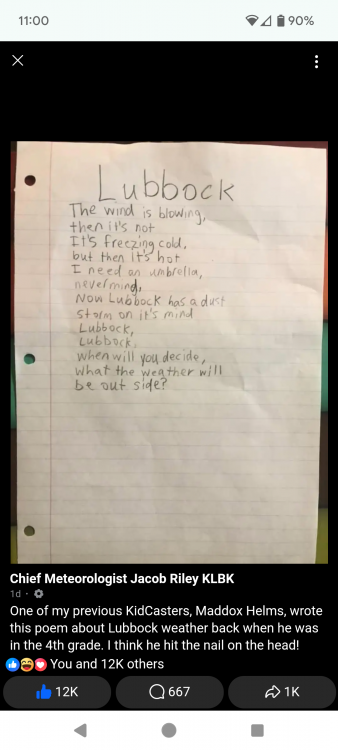 11:00
90%
Lubbock
The wind is blowing,
then it's not
It's freezing cold,
but then it's hot
I need an umbrella,
nevermind,
Now Lubbock has a dust
storm on it's mind
Lubbock,
Lubbock,
when will you decide,
what the weather will
be out side?
Chief Meteorologist Jacob Riley KLBK
1d
One of my previous KidCasters, Maddox Helms, wrote
this poem about Lubbock weather back when he was
in the 4th grade. I think he hit the nail on the head!
You and 12K others
12K
667
1K